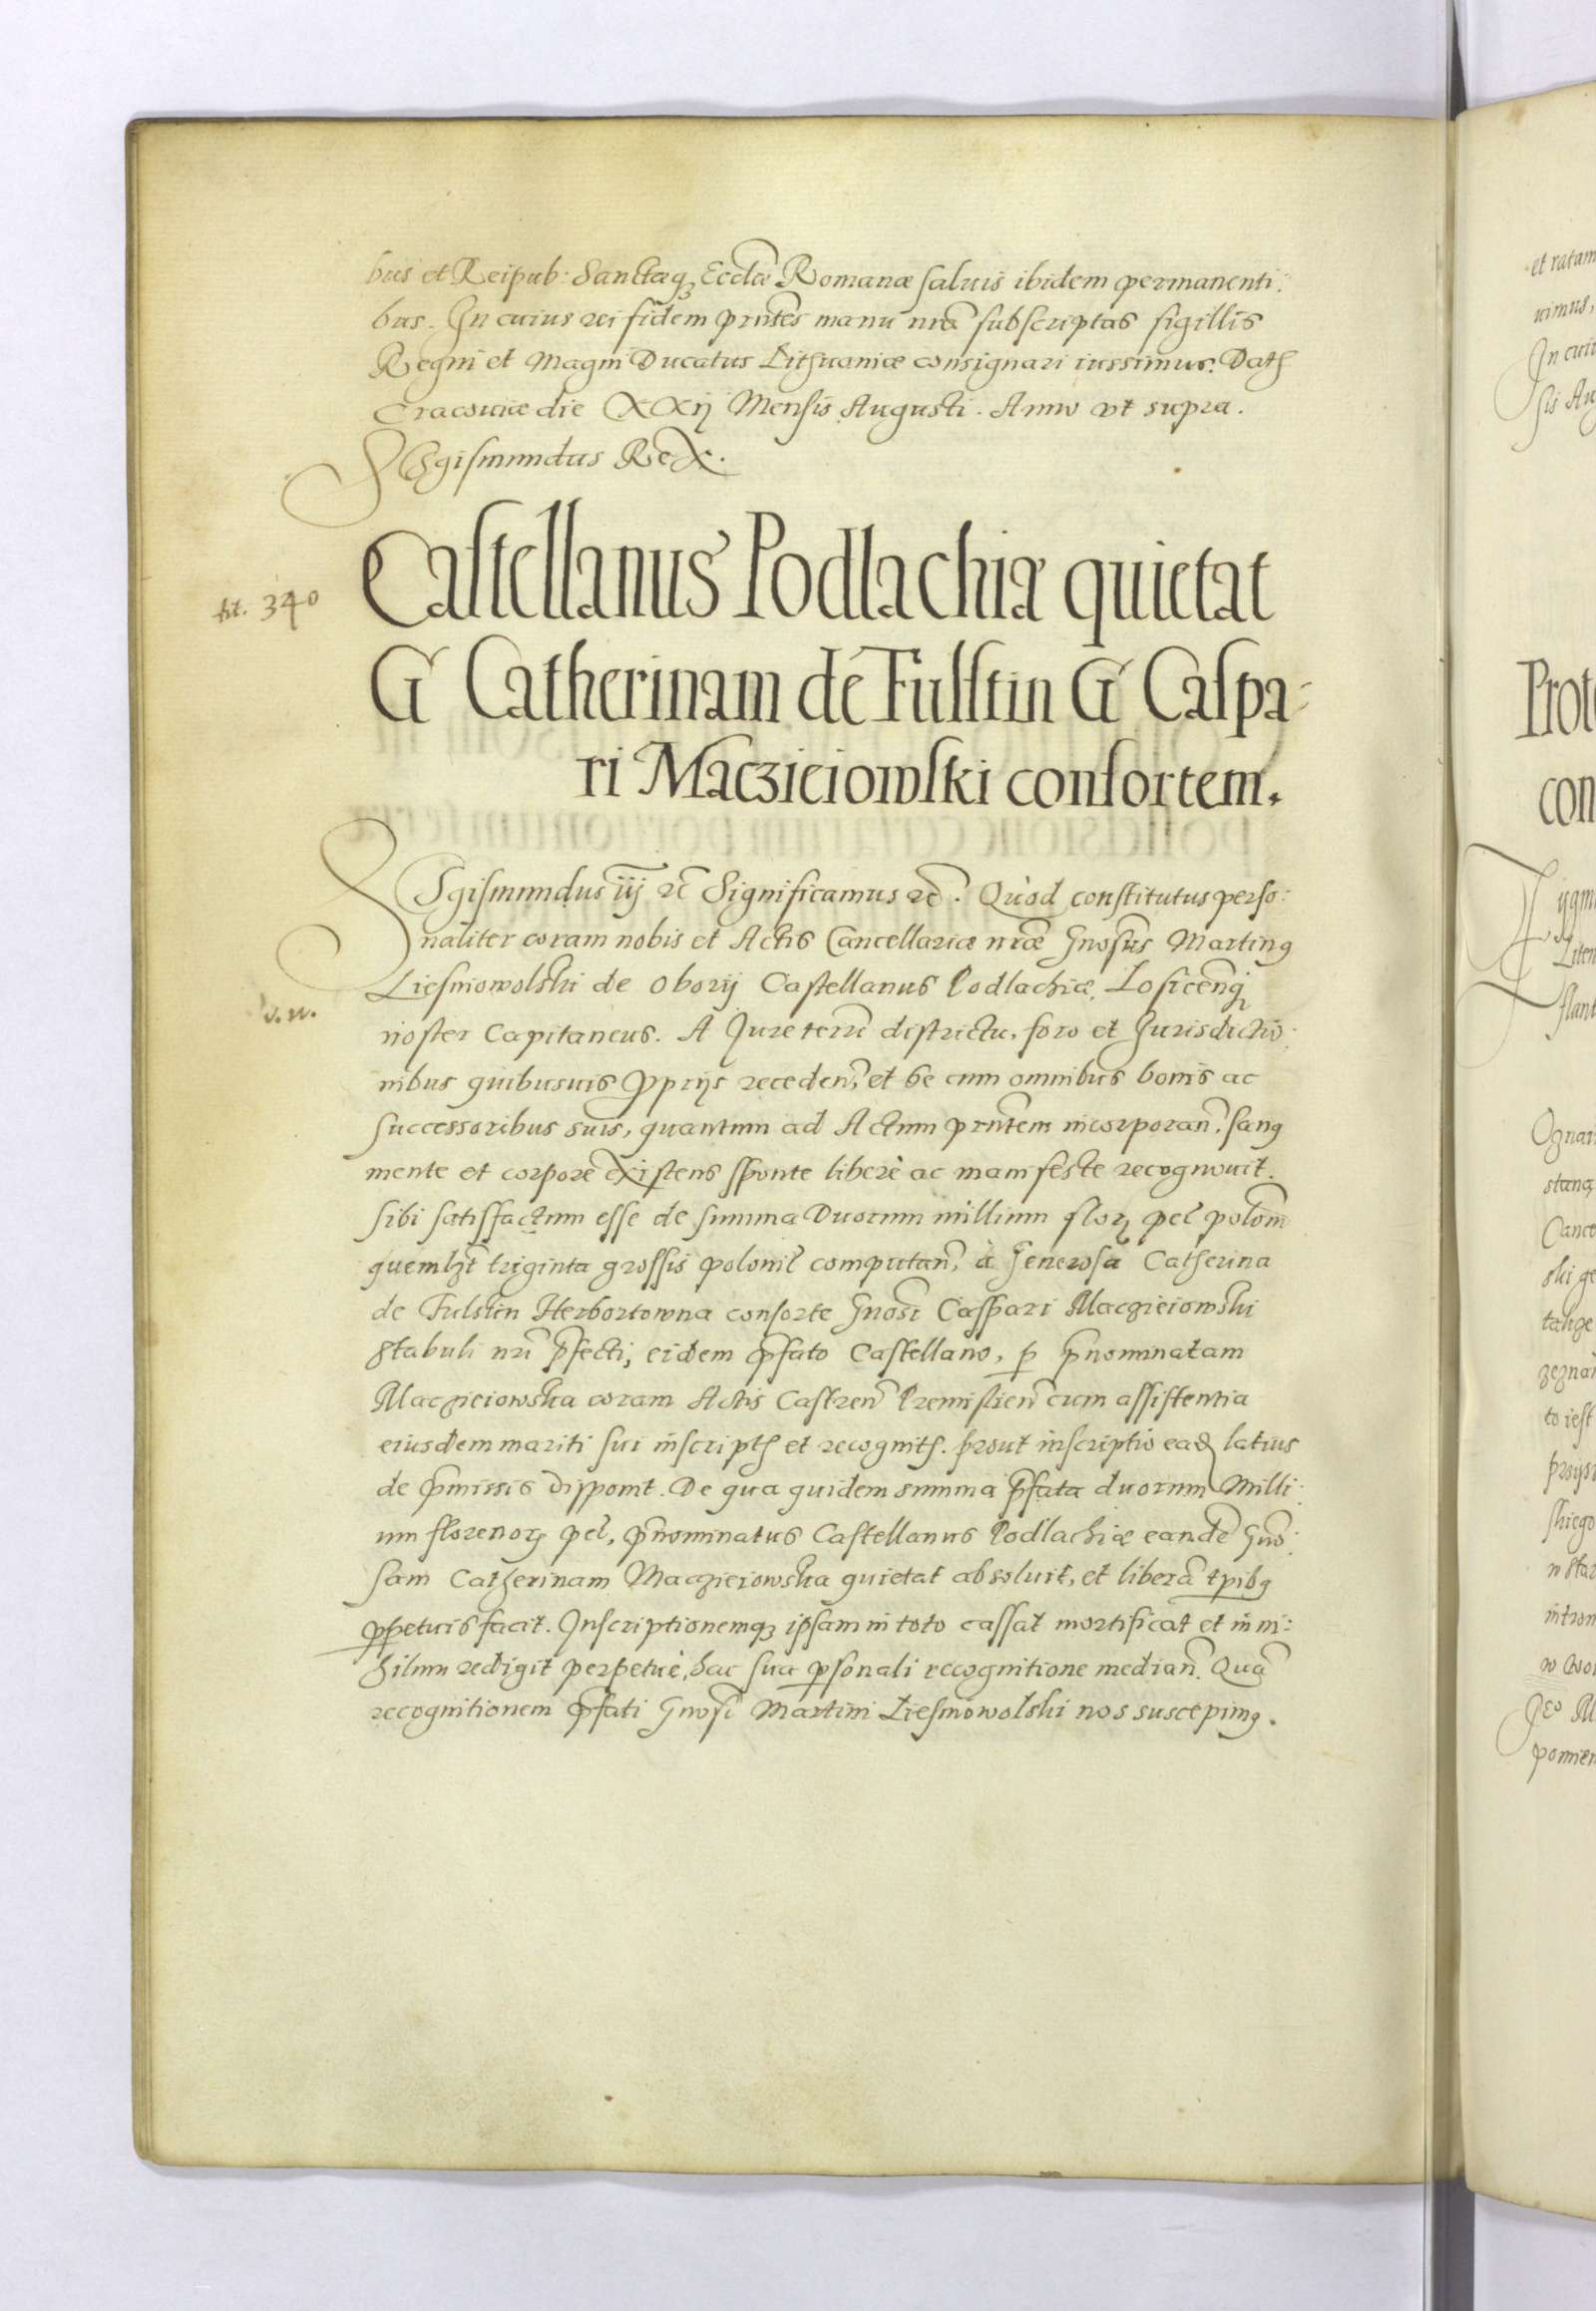 bus et Reipub: Sanctæq₃ Eccliæ Romanæ saluis ibidem permanenti:
bus. In cuius rei fidem prntes manu nrã subscriptas sigillis
Regni et Magni Ducatus Lithuaniæ consignari iussimus. Dath
Cracouiæ die XXij Mensis Augusti. Anno vt supra.
Sigismundus Rex.
fit. 340
Castellanus Podlachiæ quietat
G Catherinam de Fulstin G Caspa:
ri Maczieiowski consortem.
Sigismundus iij rc̃ Significamus rc̃. Quod constitutus perso:
naliter coram nobis et Actis Cancellariæ nræ Gnosus Martinꝰ
Liesniowolski de Oborÿ Castellanus Podlachiæ, Losicen̄ꝗ
noster Capitaneus. A Jure terrĩ districtu, foro et Jurisdictio:
nibus quibusuis ꝓprijs receden̄, et se cum omnibus bonis ac
successoribus suis, quantum ad Actum prñtem incorporan̄, sanꝰ
mente et corpore existens sponte liberè ac manifeste recognouit.
sibi satisfactum esse de summa Duorum millium floꝝ pel̃ polom̃
quemlꝫt triginta grossis polonil̃ computan̄, à Generosa Catherina
de Fulstin Herbortowna consorte Gnosi Caspari Maczieiowski
Stabuli nrĩ p̃fecti, eidem p̃fato Castellano, ꝑ p̃nominatam
Maczieiowska coram Actis Castren̄ Premislien̄ cum assistentia
eiusdem mariti sui inscripth et recognith. prout inscriptio ead latius
de p̃missis disponit. De qua quidem summa p̃fata duorum Milli:
um florenoꝝ pel̃, p̃nominatus Castellanus Podlachiæ eandẽ Gno:
sam Catherinam Maczieiowska quietat absoluit, et liberã tpibꝰ
ꝑpetuis facit. Inscriptionemq₃ ipsam in toto cassat mortificat et in ni:
hilum redigit perpetuè, hac sua ꝑsonali recognitione median̄. Quã
recognitionem p̃fati Gnosi Martini Liesniowolski nos suscepimꝰ.